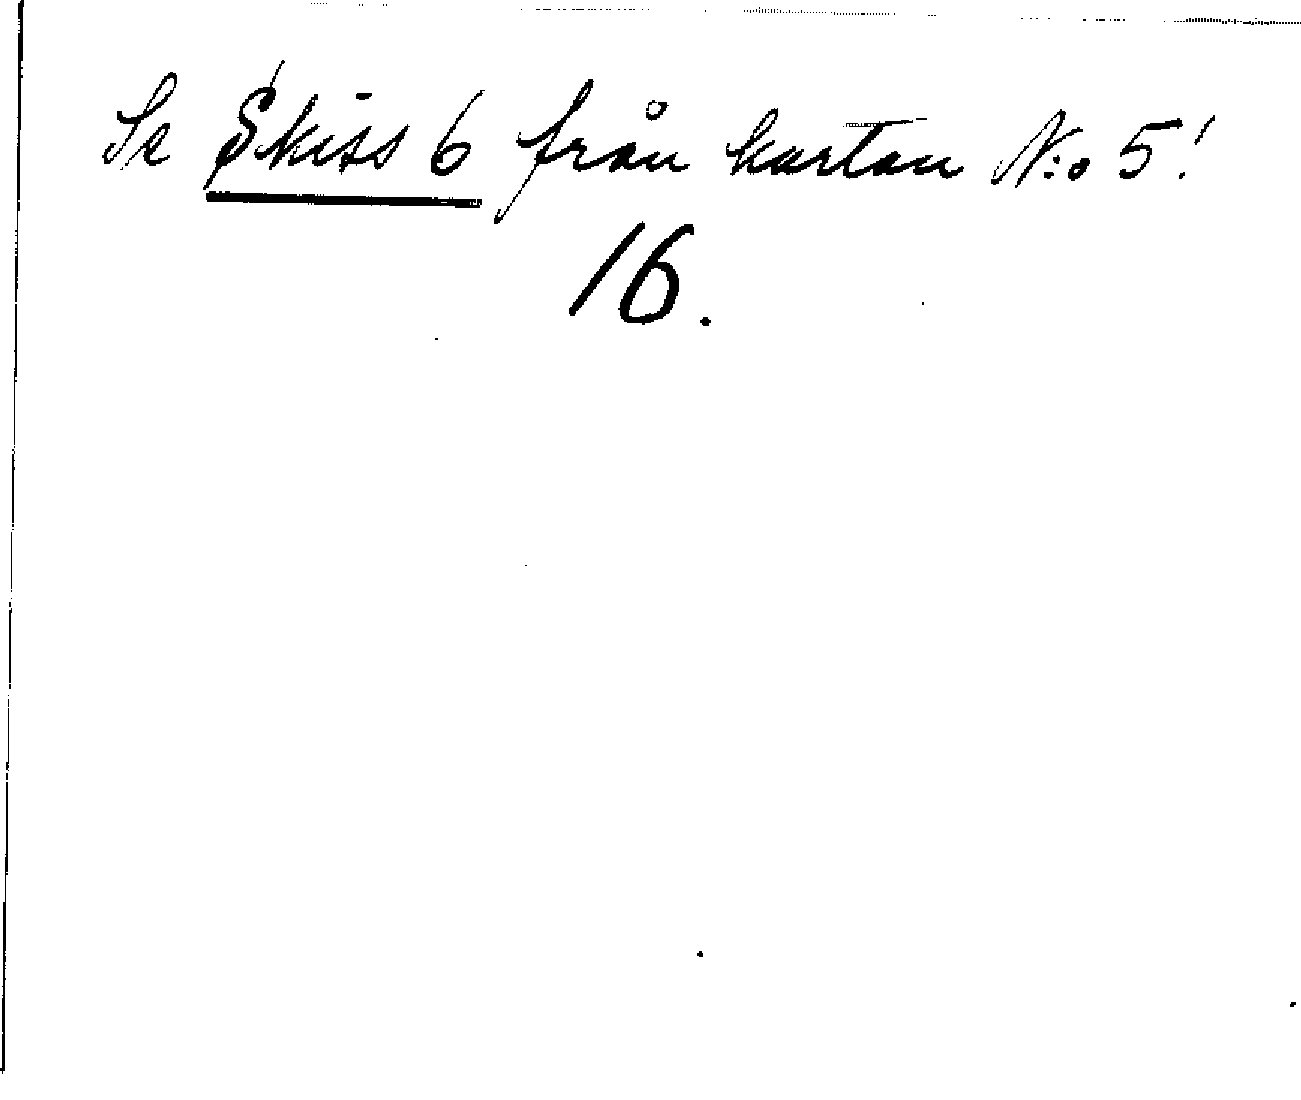 Se Skiss 6 från kartan N:o 5!
16.